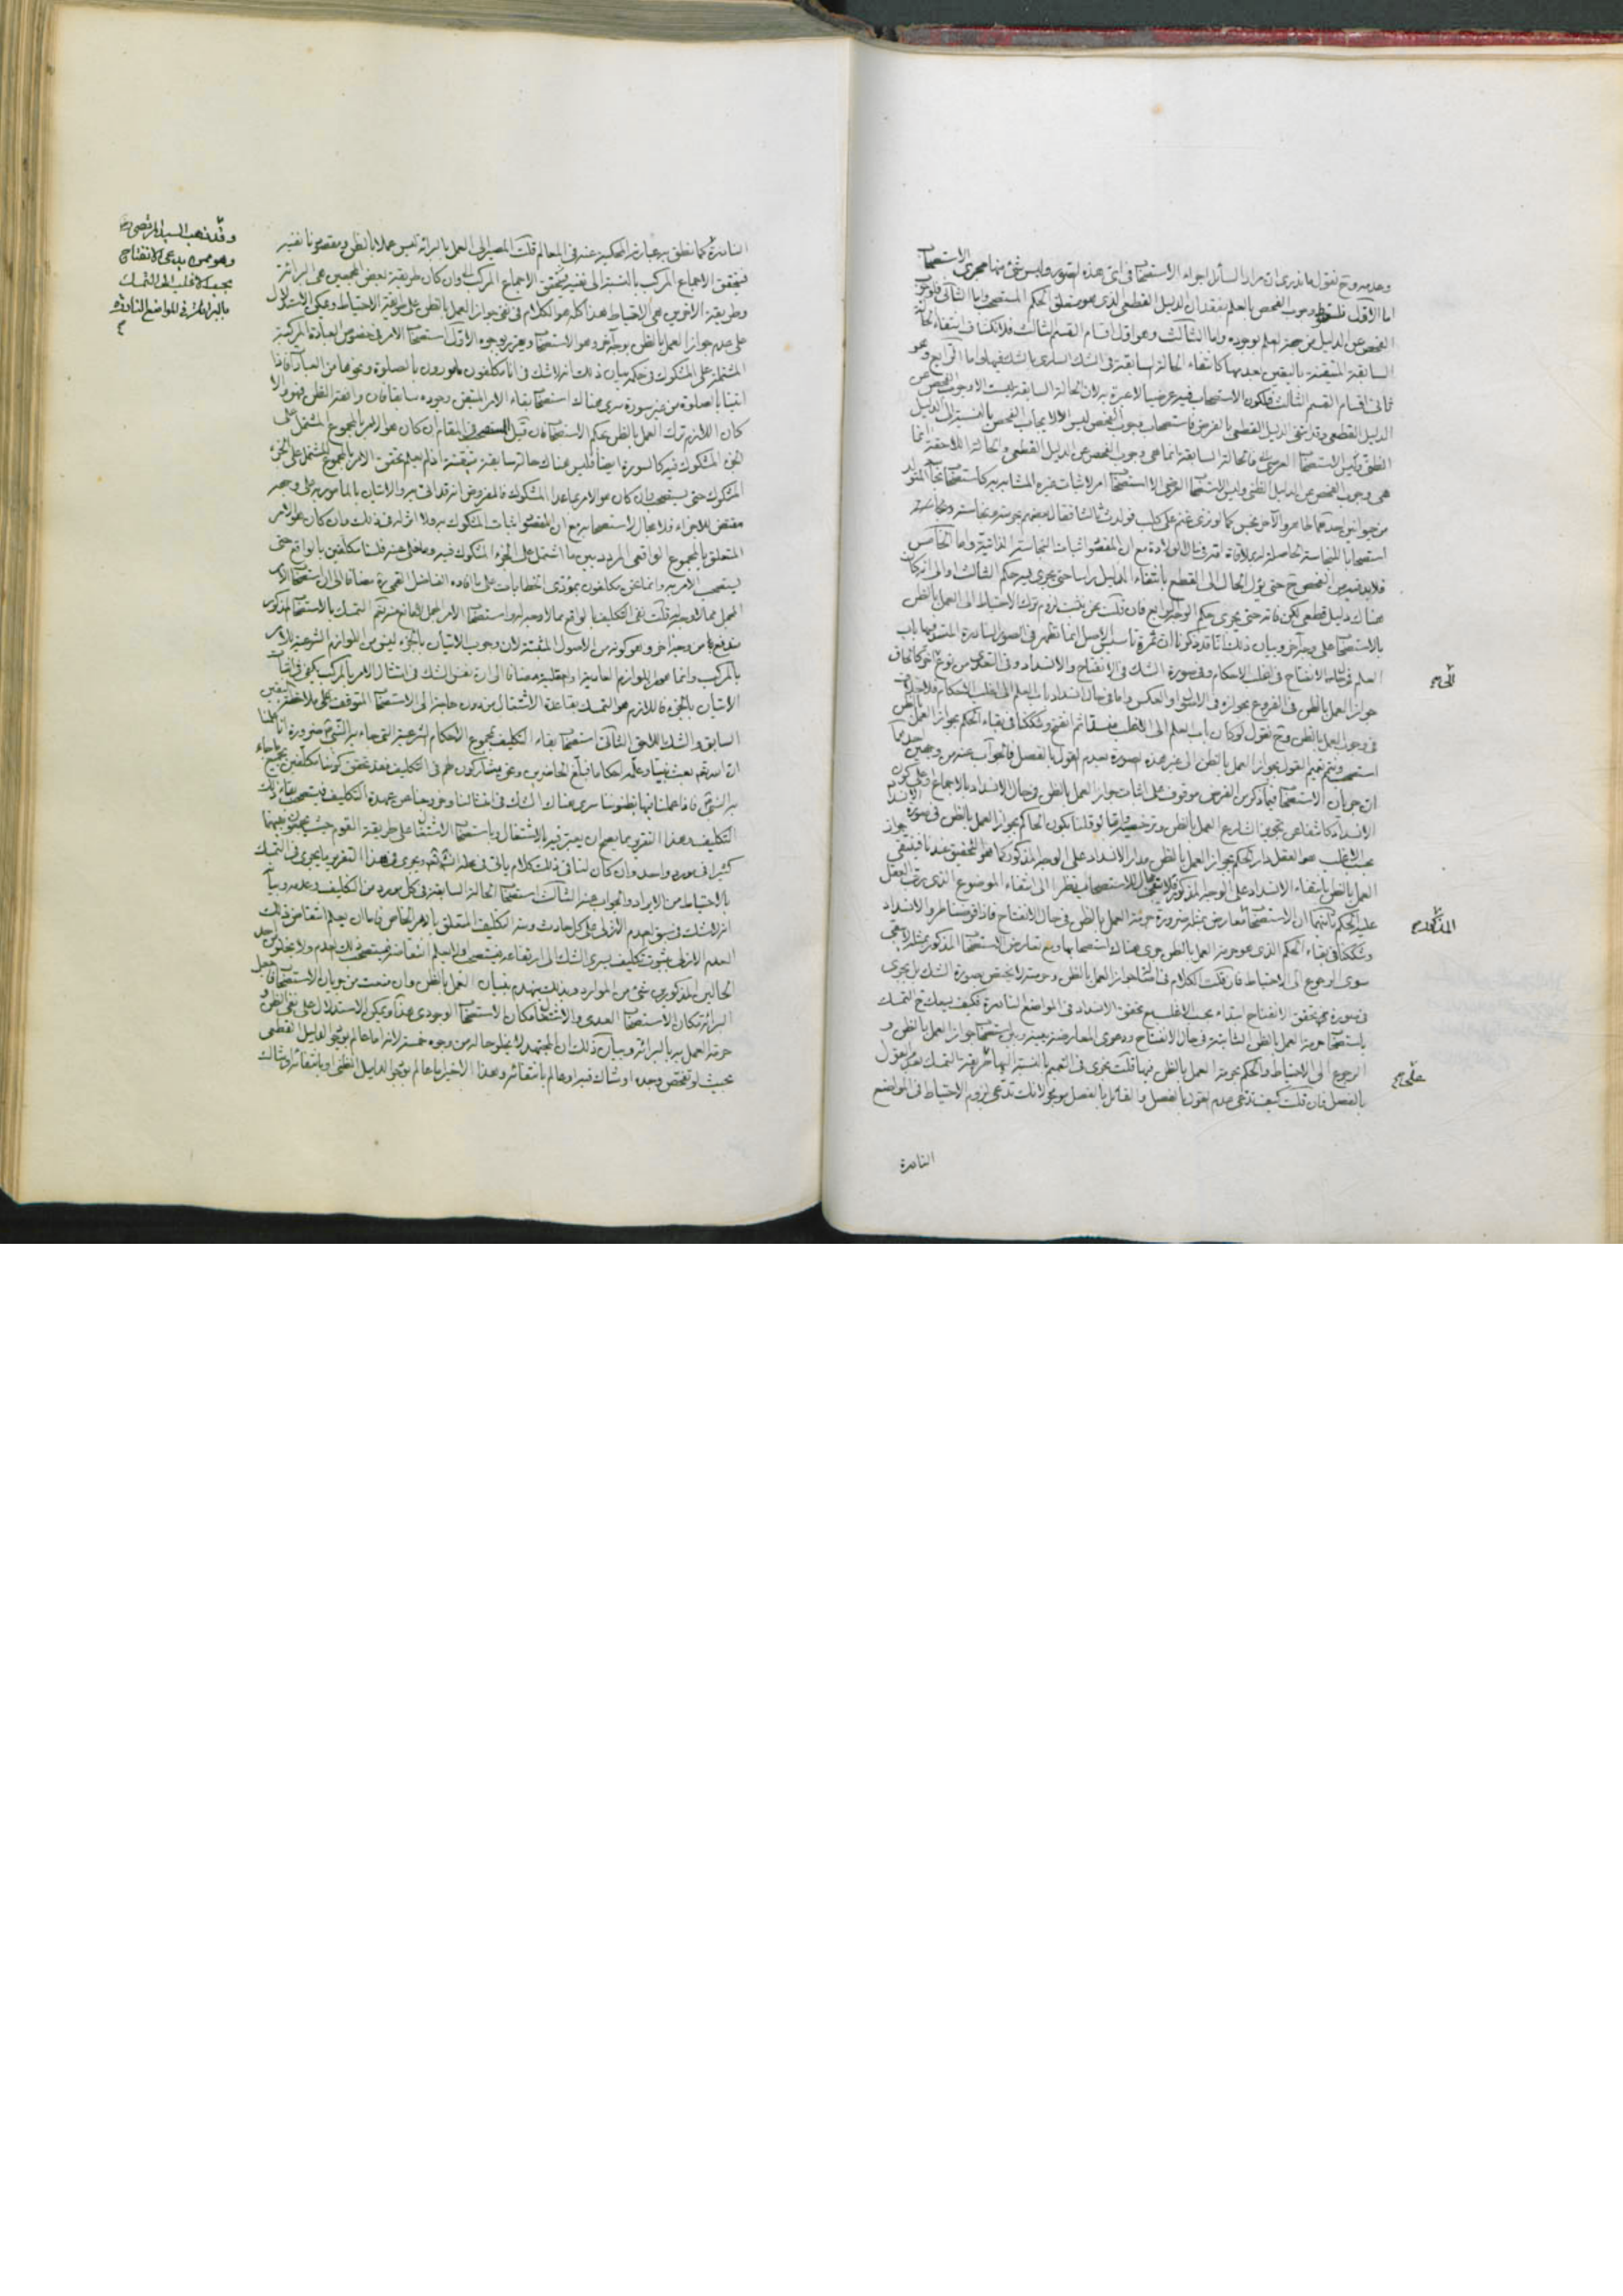 وعدمه وح نقول ما ندرى ان مراد السائل اجراء الاستصحاب فى اى هذه الصور وليس شئ منها مجرى الاستصحاب
اما الاول فلسقوط وجوب الفحص بالعلم بفقدان الدليل القطعى الذى هو متعلق الحكم المستصحب واما الثانى فلوجوب
الفحص عن الدليل من جهة العلم بوجوده واما الثالث وهو اول اقسام القسم الثالث فلانكشاف انتفاء الحالة
السابقة المتيقنة باليقين بعدمها كانتفاء الحالة السابقة فى الشك السارى بالشك فيها واما الرابع وهو
ثانى اقسام القسم الثالث فلكون الاستصحاب فيه عرضيا لا عبرة به لان الحالة السابقة ليست الا وجوب الفحص عن
الدليل القطعى وقد انتفى الدليل القطعى بالفرض فاستصحاب وجوب الفحص ليس الا لايجاب الفحص بالنسبة الى الدليل
الظنى وليس الاستصحاب العرضى فالحالة السابقة انما هى وجوب الفحص عن الدليل القطعى والحالة اللاحقة انما
هى وجوب الفحص عن الدليل الظنى وليس الاستصحاب العرضى الا استصحاب امر لاثبات غيره المشابه به كاستصحاب نجاسة المتولد
من حيوانين احدهما طاهر والاخر نجس كما لو نزى غنم على كلب فولدت ثالثا فقال بعضهم
استصحابا للنجاسة الحاصلة له بملاقاة القذر فى ان الولادة مع ان المقصود اثبات النجاسة الذاتية واما الخامس
فلا بد فيه من الفحص ح حتى يؤل الحال الى القطع بانتفاء الدليل راسا حتى يجرى فيه حكم الثالث والى انه كان
هناك دليل قطعى لكن فات حتى يجرى حكم الوجه الرابع فان قلت نحن نثبت لزوم ترك الاحتياط الى العمل بالظن
بالاستصحاب على وجه آخر وبيان ذلك انا قد ذكرنا ان ثمرة تاسيس الاصل انما تظهر فى الصور النادرة المنسد فيها باب
العلم فى مثله الانفتاح فى اغلب الاحكام وفى صورة الشك فى الانفتاح والانسداد وفى التعدى من نوع
جواز العمل بالظن فى الفروع بجوازه فى الاصول او العكس واما فى حال انسداد باب العلم الى اغلب الاحكام
فى وجوب العمل بالظن وح نقول لو كان باب العلم الى الاغلب منسدا ثم انفتح وشككنا فى بقاء الحكم بجواز العمل بالظن
استصحب ويتم تعميم القول بجواز العمل بالظن الى غير هذه الصورة بعدم القول بالفصل فالجواب عنه من وجهين احدهما
ان جريان الاستصحاب فيما ذكر من الفرض موقوف على اثبات جواز العمل بالظن فى حال الانسداد بالاجماع وعلى كون
الانسداد كاشفا عن تجويز الشارع العمل بالظن وترخيصه
بحسب الاغلب هو العقل دار الحكم بجواز العمل بالظن مدار الانسداد على الوجه المذكور كما هو التحقيق عندنا فينتفى جواز
العمل بالظن بانتفاء الانسداد على الوجه المذكور فلا يبقى مجال للاستصحاب نظرا الى انتفاء الموضوع الذى رتب العقل
عليه الحكم ثانيهما ان الاستصحاب معارض بمثله ضرورة حرمة العمل بالظن فى حال الانفتاح
وشككنا فى بقاء الحكم الذى هو حرمة العمل بالظن جرى هناك استصحابها ومع تعارض الاستصحاب المذكور بمثله لا يبقى
سوى الرجوع الى الاحتياط فان قلت الكلام فى اثبات جواز العمل بالظن وحرمته لا يختص بصورة الشك بل يجرى
فى صورة تحقق الانفتاح ابتداء بحسب الاغلب مع تحقق الانسداد فى المواضع النادرة فكيف يسعك ح التمسك
باستصحاب حرمة العمل بالظن الثابتة فى حال الانفتاح ودعوى المعارضة بينه وبين استصحاب جواز العمل بالظن و
الرجوع الى الاحتياط والحكم بحرمة العمل بالظن فيها قلت نجرى فى التعميم بالنسبة اليها طريقة التمسك بعدم القول
بالفصل فان قلت كيف تدعى عدم القول بالفصل والقائل بالفصل موجود لانك تدعى لزوم الاحتياط فى المواضع
النادرة
المذكور
على
النادرة كما نطق به عبارته المحكية عنه فى المعالم قلت المصير الى العمل بالبرائة ليس عملا بالظن ومقصودنا نفيه
فيتحقق الاجماع المركب بالنسبة الى نفيه فيتحقق الاجماع المركب وان كان طريقة بعض المجمعين هى البرائة
وطريقة الاخرين هى الاحتياط هذا كله هو الكلام فى نفى جواز العمل بالظن على طريقة الاحتياط ويمكن الاستدلال
على عدم جواز العمل بالظن بوجه آخر وهو الاستصحاب وتقريره بوجوه الاول استصحاب الامر فى خصوص العبادة المركبة
المشتملة على المشكوك فى حكمه بيان ذلك انه لا شك فى انا مكلفون مامورون بالصلوة ونحوها من العبادات فاذا
اتينا بالصلوة من غير سورة سرى هناك استصحاب بقاء الامر المتيقن وجوده سابقا فان وافقه الظن فهو والا
كان اللازم ترك العمل بالظن بحكم الاستصحاب فان قيل المستصحب فى المقام ان كان هو الامر بالمجموع المشتمل على
الجزء المشكوك فيه كالسورة ايضا فليس هناك حالة سابقة متيقنة اذ لم يعلم تحقق الامر بالمجموع المشتمل على الجزء
المشكوك حتى يستصحب وان كان هو الامر بما عدا المشكوك فالمفروض انه قد اتى به والاتيان بالمامور به على وجهه
مقتض للاجزاء فلا مجال لاستصحابه مع ان المقصود اثبات المشكوك به ولا اثر له فى ذلك وان كان هو الامر
المتعلق بالمجموع الواقعى المردد بين ما اشتمل على الجزء المشكوك فيه وما خلى عنه فلسنا مكلفين بالواقع حتى
يستصحب الامر به وانما نحن مكلفون بمؤدى الخطابات على ما افاده الفاضل القمى ره مضافا الى ان استصحاب الامر
المجمل مما لا وجه له قلت نفى التكليف بالواقع مما لا وجه له
مندفع بما من وجه آخر وهو كونه من الاصول المثبتة لان وجوب الاتيان بالجزء ليس من اللوازم الشرعية للامر
بالمركب وانما هو من اللوازم العادية او العقلية مضافا الى ان نفس الشك فى امتثال الامر بالمركب يكفى فى ايجاب
الاتيان بالجزء فاللازم هو التمسك بقاعدة الاشتغال من دون حاجة الى الاستصحاب المتوقف على ملاحظة اليقين
السابق والشك اللاحق الثانى استصحاب بقاء التكليف بمجموع الاحكام الشرعية التى جاء بها النبى ص ضرورة انا علمنا
ان الله تعالى بعث نبينا وعلمه احكاما فبلغ الحاضرين ونحن مشاركون لهم فى التكليف فقد تحقق كوننا مكلفين بجميع ما جاء
به النبى ص فاذا عملنا فيها بظنوننا سرى هناك الشك فى امتثالنا وخروجنا عن عهدة التكليف فيستصحب بقاء ذلك
التكليف وهذا التقرير مما يصح ان يعتبر فيه بالاشتغال وباستصحاب الاشتغال على طريقة القوم حيث يجمعون بينهما
كثيرا فى مورد واحد وان كان لنا فى ذلك كلام ياتى فى محله انشاء الله ويجرى فى هذا التقرير ما يجرى فى التمسك
بالاحتياط من الايراد والجواب عنه الثالث استصحاب الحالة السابقة فى كل مورد من التكليف وعدمه وبيانه
انه لا شك فى سبق العدم الازلى على كل حادث ومنه التكليف المتعلق بالامر الخاص فاما ان يعلم انتقاض ذلك
العدم الازلى بثبوت تكليف يسرى الشك الى ارتفاعه فيستصحب او لم يعلم انتقاضه فيستصحب ذلك العدم ولا يخلو من احد
الحالين المذكورين شئ من الموارد وبذلك ينهدم بنيان العمل بالظن وان منعت من جريان الاستصحاب فاجعل
البرائة مكان الاستصحاب العدمى والاشتغال مكان الاستصحاب الوجودى هذا ويمكن الاستدلال على نفى الظن و
حرمة العمل به بالبرائة وبيان ذلك ان المجتهد لا يخلو حاله من وجوه خمسة لانه اما عالم بوجود الدليل القطعى
بحيث لو تفحص وجده او شاك فيه او عالم بانتفائه وهذا الاخير اما عالم بوجود الدليل الظنى او بانتفائه او شاك
وقد ذهب السيد المرتضى رض
وهو ممن يدعى الانفتاح
بحسب الاغلب الى التمسك
بالبرائة فى المواضع النادرة